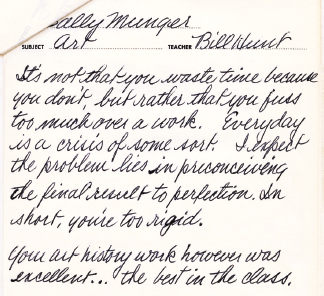 ally Munger
SUBJECT Art TEACHER Bill Hunt
It's not that you waste time because
you don't, but rather that you fuss
too much over a work. Everyday
is a crisis of some sort. I expect
the problem lies in preconceiving
the final result to perfection. In
short, you're too rigid.
Your art history work however was
excellent... the best in the class.